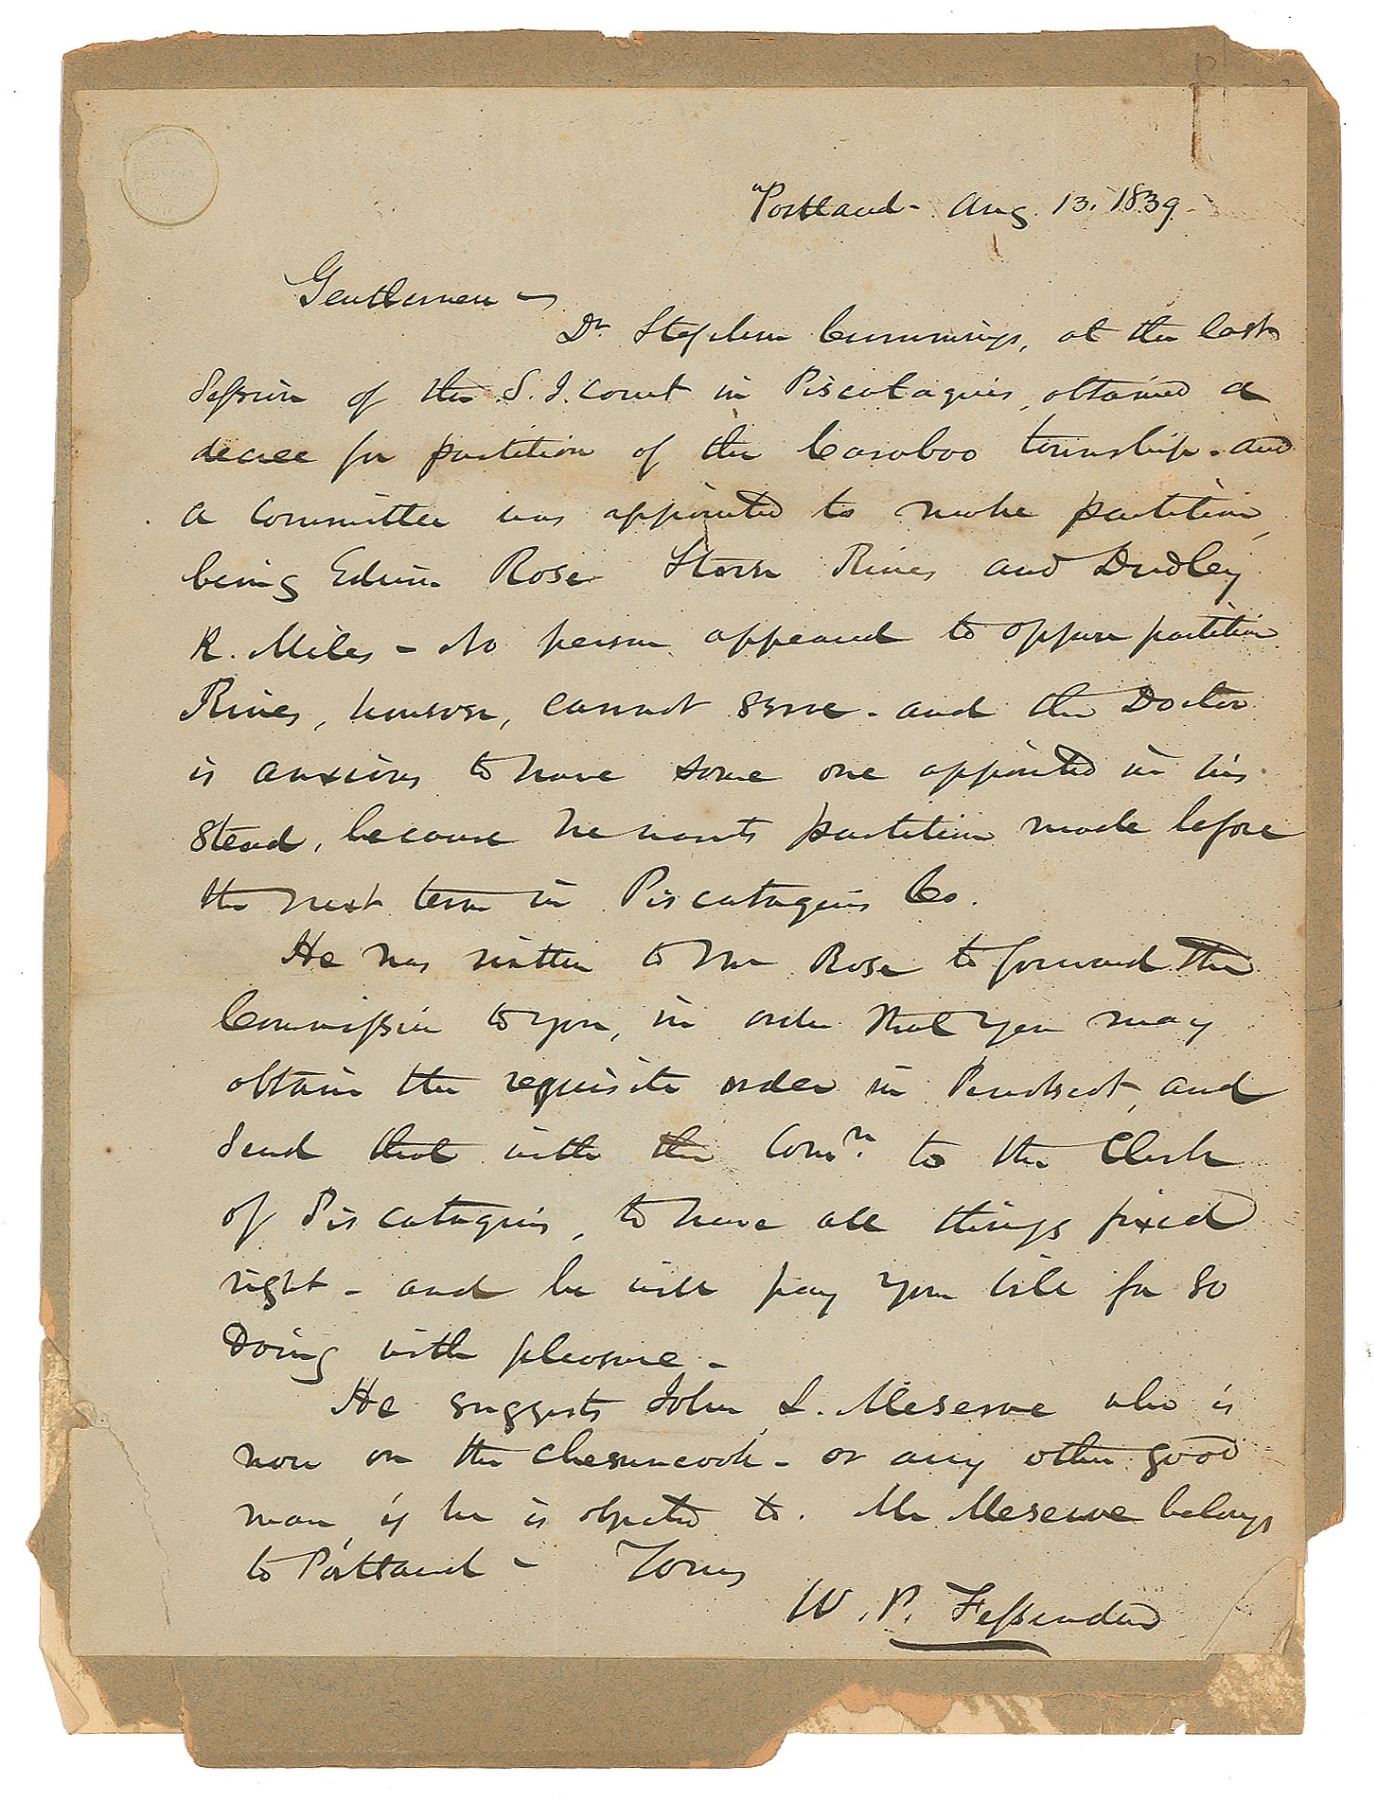 Portland - Aug. 13. 1839.
Gentlemen -
Dr Stephen Cummings, at the last
Session of the S. J. Court in Piscataquis, obtained a
decree for partition of the Caraboo township - and
a committee was appointed to make partition,
being Edwin Rose Rines and Dudley
R. Miles - No person appeared to oppose partition
Rines, however, cannot serve - and the Doctor
is anxious to have some one appointed in his
stead, because he wants partition made before
the next term in Piscataquis Co.
He has written to Mr Rose to forward the
Commission to you, in order that you may
obtain the requisite order in Penobscot, and
send that with the Comn. to the Clerk
of Piscataquis, to have all things fixed
right - and he will pay your bill for so
doing with pleasure -
He suggests John L. Meserve who is
now on the Chesuncook - or any other good
man, if he is objected to. Mr Meserve belongs
to Portland - Yours
W. P. Fessenden